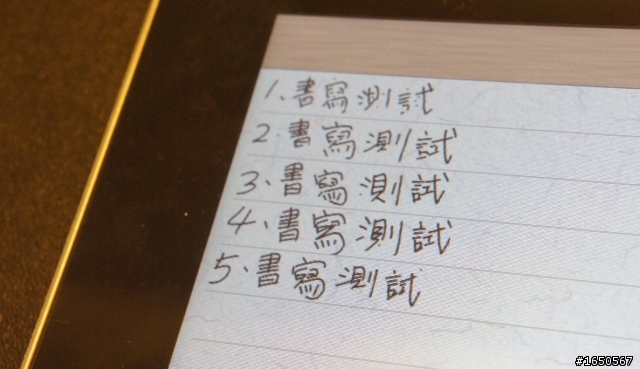 1、書寫測試
2、書寫測試
3、書寫測試
4、書寫測試
5、書寫測試
#1650567